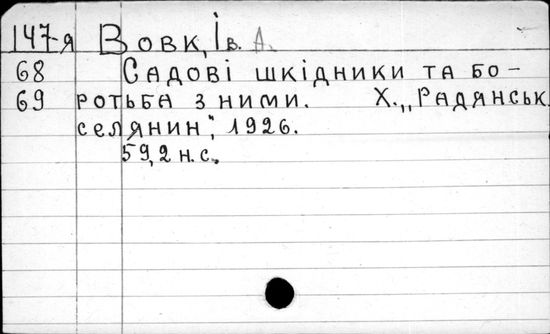 147-я Вовк, Ів. А.
68 Садові шкідники та бо-
69 ротьба з ними. Х. „Радянськ.
селянин", 1926.
59, 2 н. с.